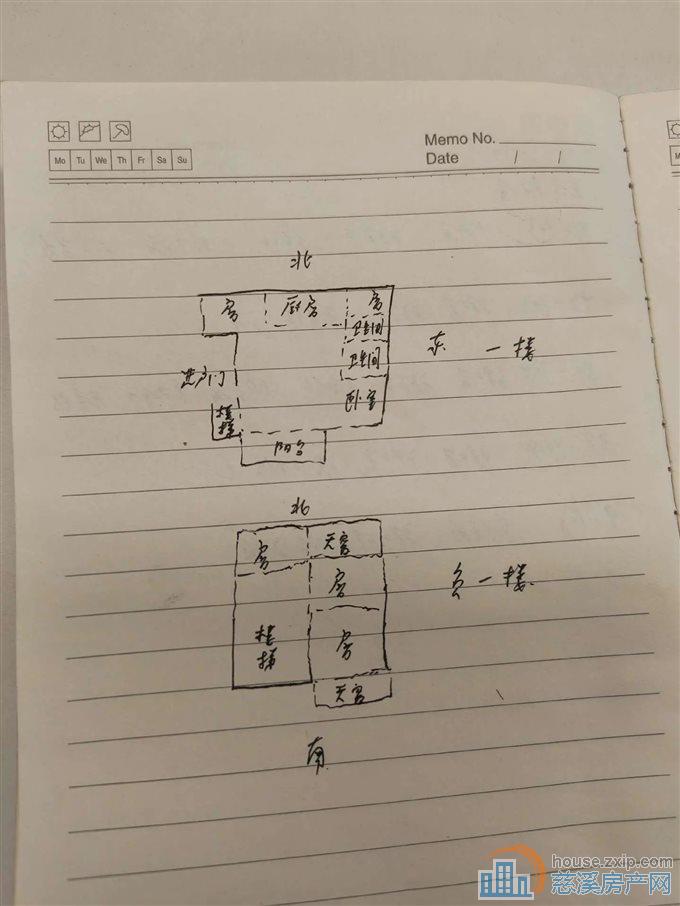 Memo No.
Date / /
Mo Tu We Th Fr Sa Su
北
房 厨房 房
卫生间
进户门 卫生间 东 一楼
楼梯 卧室
阳台
北
房 天窗
房 负一楼
楼梯 房
天窗
南
house.zxip.com
慈溪房产网